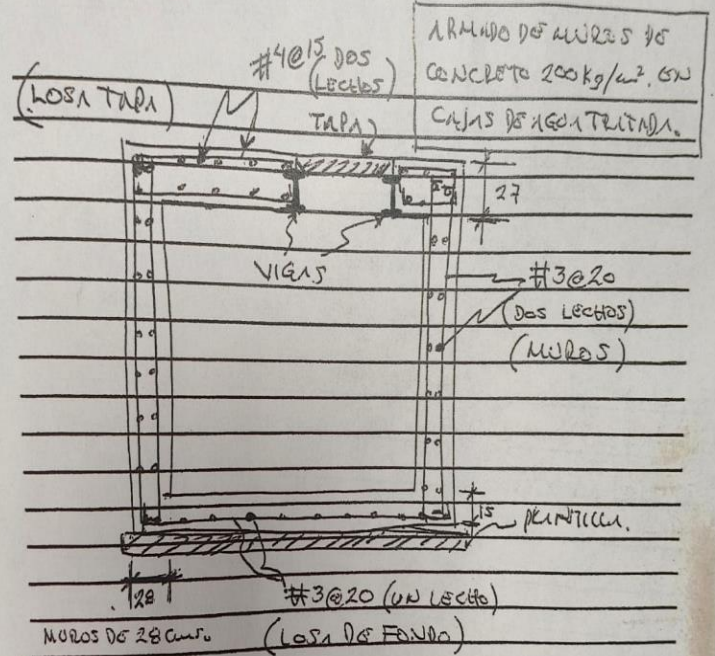 ARMADO DE MUROS DE
CONCRETO 200 Kg/cm². EN
CAJAS DE AGUA TRATADA.
#4@15 DOS
(LECHOS)
(LOSA TAPA)
TAPA
27
VIGAS
#3@20
(DOS LECHOS)
(MUROS)
15
PLANTILLA.
28
#3@20 (UN LECHO)
MUROS DE 28 cms.
(LOSA DE FONDO)